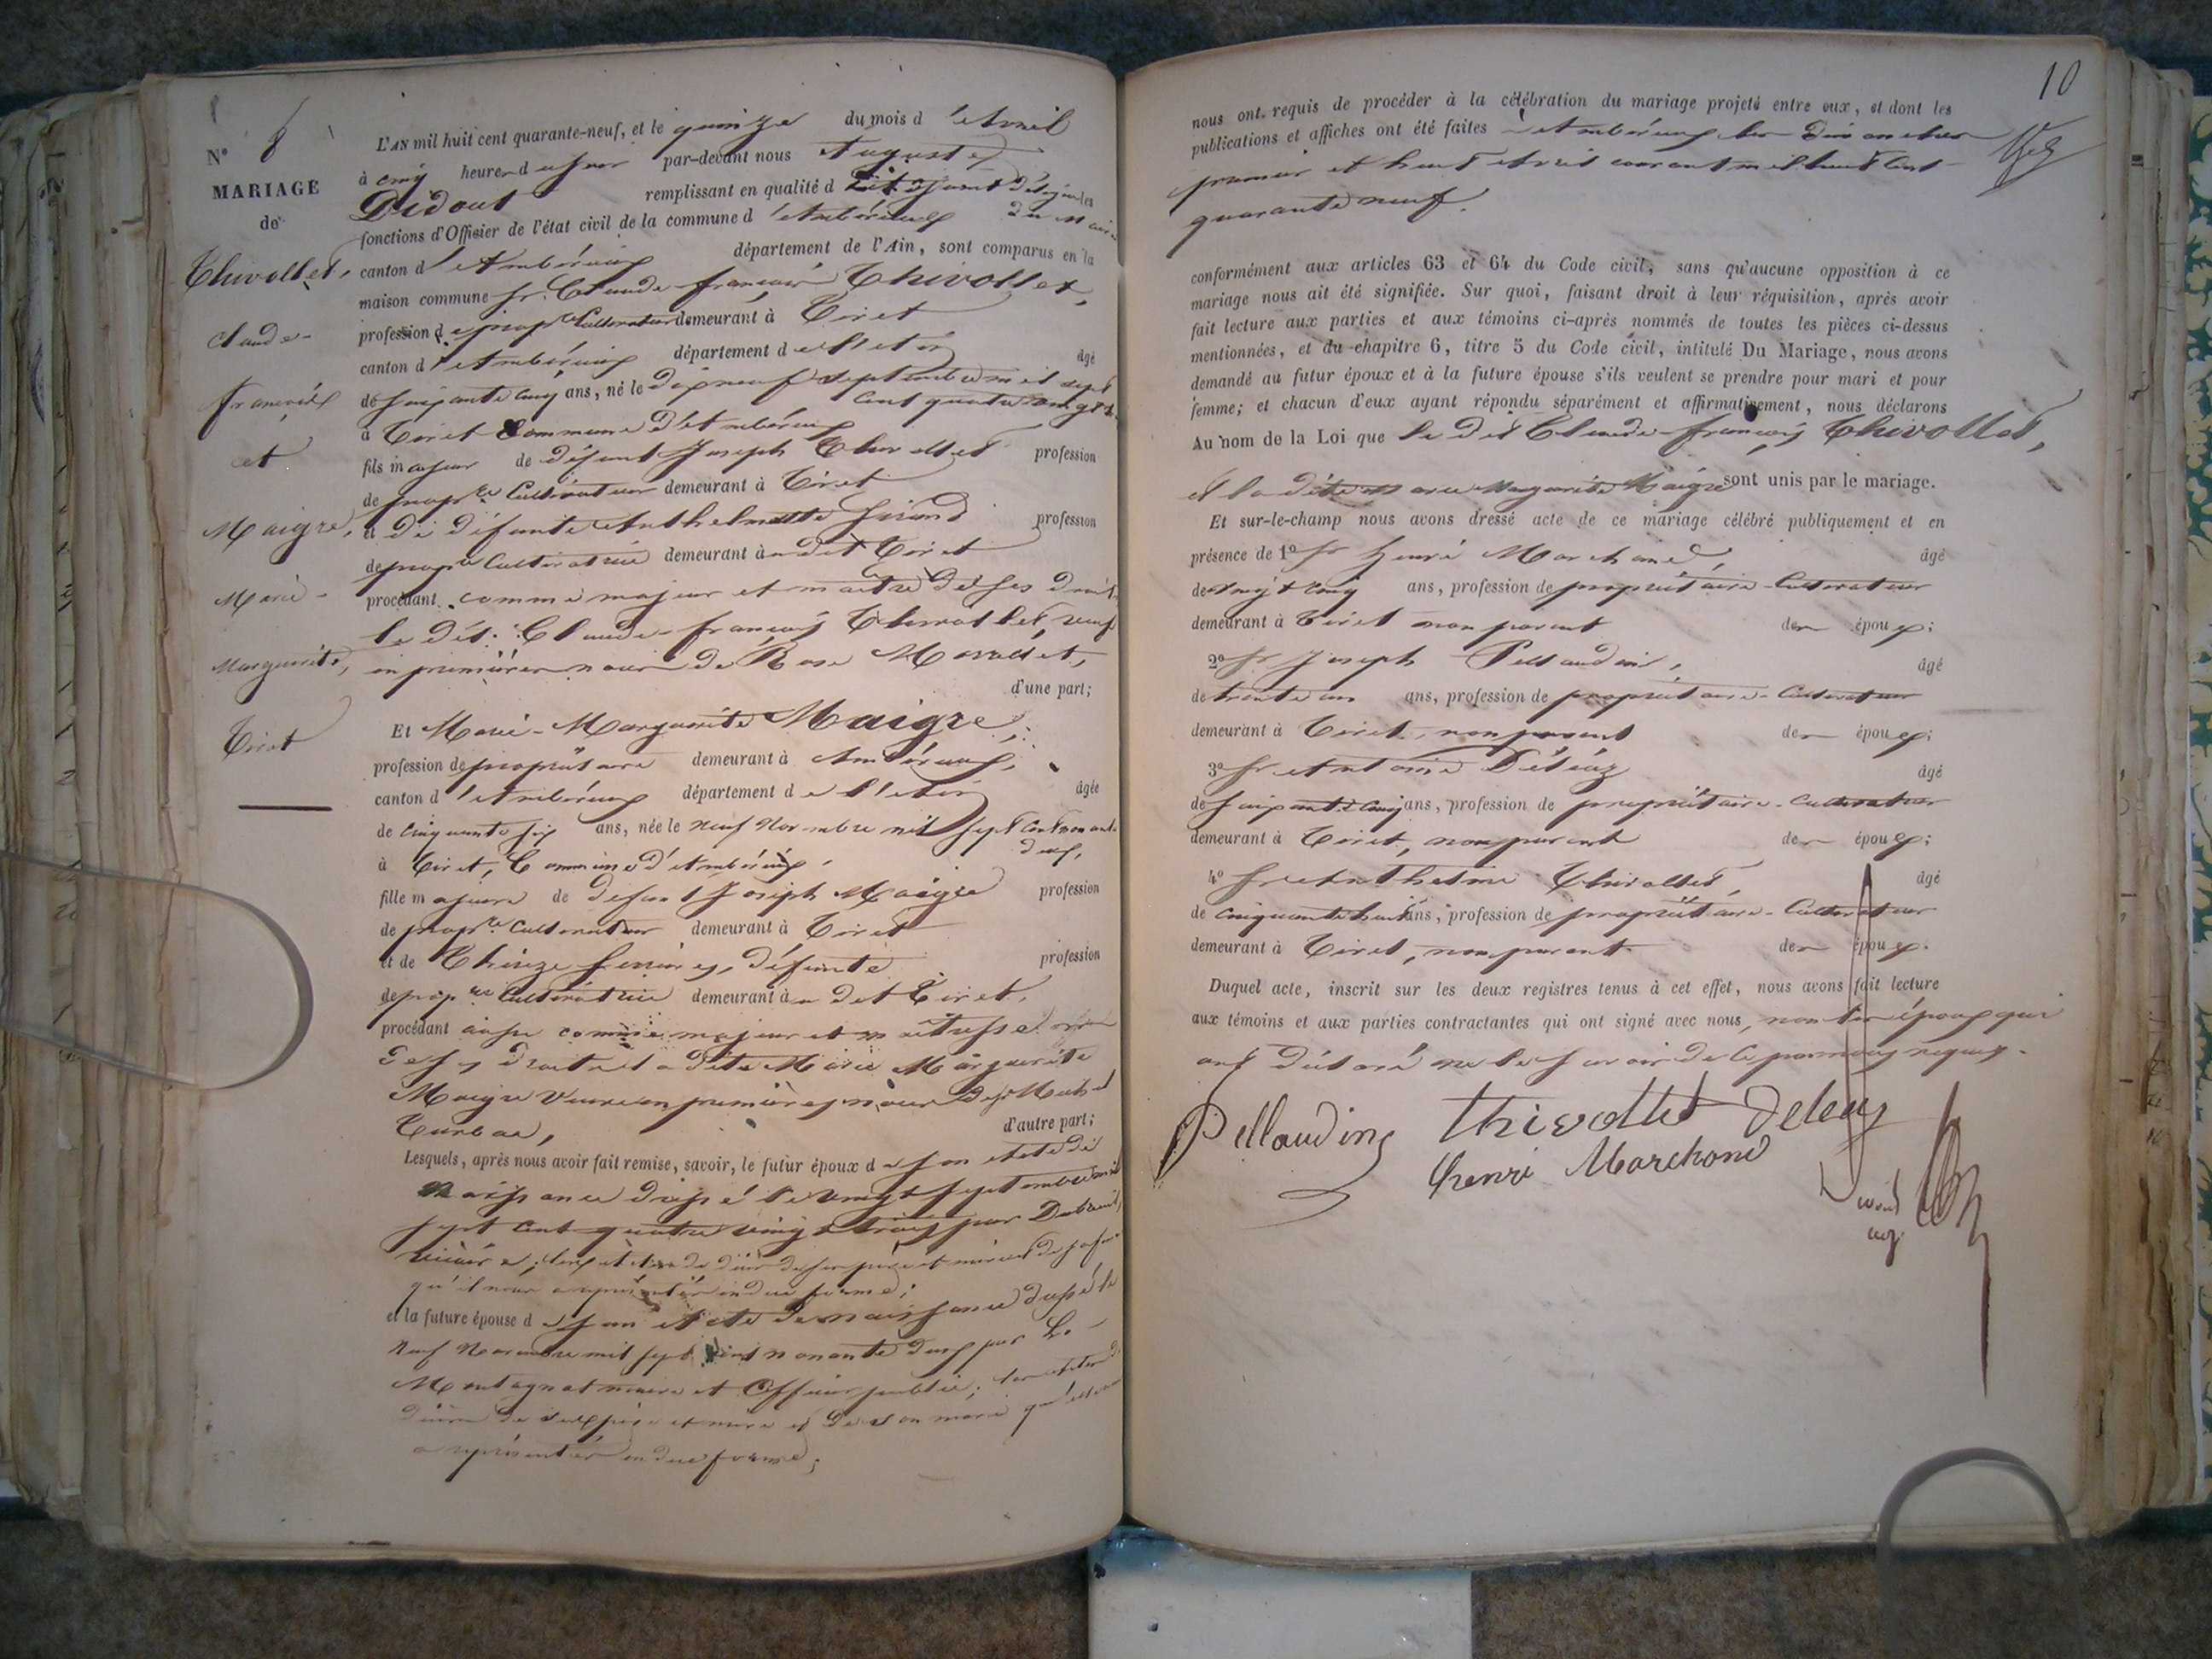 N° 8
MARIAGE
de
Thivollet,
Claude-
François
et
Maigre,
Marie-
Marguerite,
Tiret
L'AN mil huit cent quarante-neuf, et le quinze du mois d'Avril
à cinq heures du soir par-devant nous Auguste
Didout remplissant en qualité d'adjoint délégué les
du maire
fonctions d'Officier de l'état civil de la commune d'Ambérieux
canton d'Ambérieux département de l'Ain, sont comparus en la
maison commune Sr. Claude-François Thivollet,
profession de propre Cultivateur demeurant à Tiret
canton d'Ambérieux département de l'Ain âgé
de soixante cinq ans, né le dix neuf septembre mil sept
cent quatre vingt
à Tiret Commune d'Ambérieux
fils majeur de défunt Joseph Thivollet profession
de propre Cultivateur demeurant à Tiret
et de défunte Anthelmette profession
de propre Cultivatrice demeurant audit Tiret
procédant comme majeur et maître de ses droits
le dit Claude-François Thivollet, veuf
en premières noces de Rose
d'une part;
Et Marie-Marguerite Maigre,
profession de propriétaire demeurant à Ambérieux,
canton d'Ambérieux département de l'Ain âgée
de cinquante six ans, née le neuf Novembre mil sept cent nonante
deux,
à Tiret, Commune d'Ambérieux,
fille majeure de défunt Joseph Maigre profession
de propre Cultivateur demeurant à Tiret
et de défunte profession
de propre Cultivatrice demeurant audit Tiret,
procédant aussi comme majeure et maîtresse
de ses droits la dite Marie Marguerite
Maigre veuve en premières noces de
d'autre part;
Lesquels, après nous avoir fait remise, savoir, le futur époux de son acte de
naissance dressé le vingt septembre mil
sept cent quatre vingt trois par
vicaire; les actes de décès de ses père et mère et de sa femme
qu'il nous a représentés en due forme;
et la future épouse de son acte de naissance dressé le
neuf Novembre mil sept cent nonante deux par
Montagnat maire et Officier public; les actes de
décès de ses père et mère et de son mari qu'elle nous
a représentés en due forme;
10
nous ont requis de procéder à la célébration du mariage projeté entre eux, et dont les
publications et affiches ont été faites à Ambérieux les dimanches
premier et huit Avril courant mil huit cent
quarante neuf.
conformément aux articles 63 et 64 du Code civil, sans qu'aucune opposition à ce
mariage nous ait été signifiée. Sur quoi, faisant droit à leur réquisition, après avoir
fait lecture aux parties et aux témoins ci-après nommés de toutes les pièces ci-dessus
mentionnées, et du chapitre 6, titre 5 du Code civil, intitulé Du Mariage, nous avons
demandé au futur époux et à la future épouse s'ils veulent se prendre pour mari et pour
femme; et chacun d'eux ayant répondu séparément et affirmativement, nous déclarons
Au nom de la Loi que le dit Claude-François Thivollet,
et la dite Marie Marguerite Maigre sont unis par le mariage.
Et sur-le-champ nous avons dressé acte de ce mariage célébré publiquement et en
présence de 1° Sr Henri Marchand, âgé
de vingt cinq ans, profession de propriétaire-Cultivateur
demeurant à Tiret non parent des époux;
2° Sr Joseph Pellaudin, âgé
de trente un ans, profession de propriétaire-Cultivateur
demeurant à Tiret, non parent des époux;
3° Sr Antoine Deléaz âgé
de soixante cinq ans, profession de propriétaire-Cultivateur
demeurant à Tiret, non parent des époux;
4° Sr Anthelme Thivollet, âgé
de cinquante huit ans, profession de propriétaire-Cultivateur
demeurant à Tiret, non parent des époux.
Duquel acte, inscrit sur les deux registres tenus à cet effet, nous avons fait lecture
aux témoins et aux parties contractantes qui ont signé avec nous, non les époux qui
ont déclaré ne le savoir de ce par nous requis.
Pellauding Thivollet Deleaz
henri Marchand